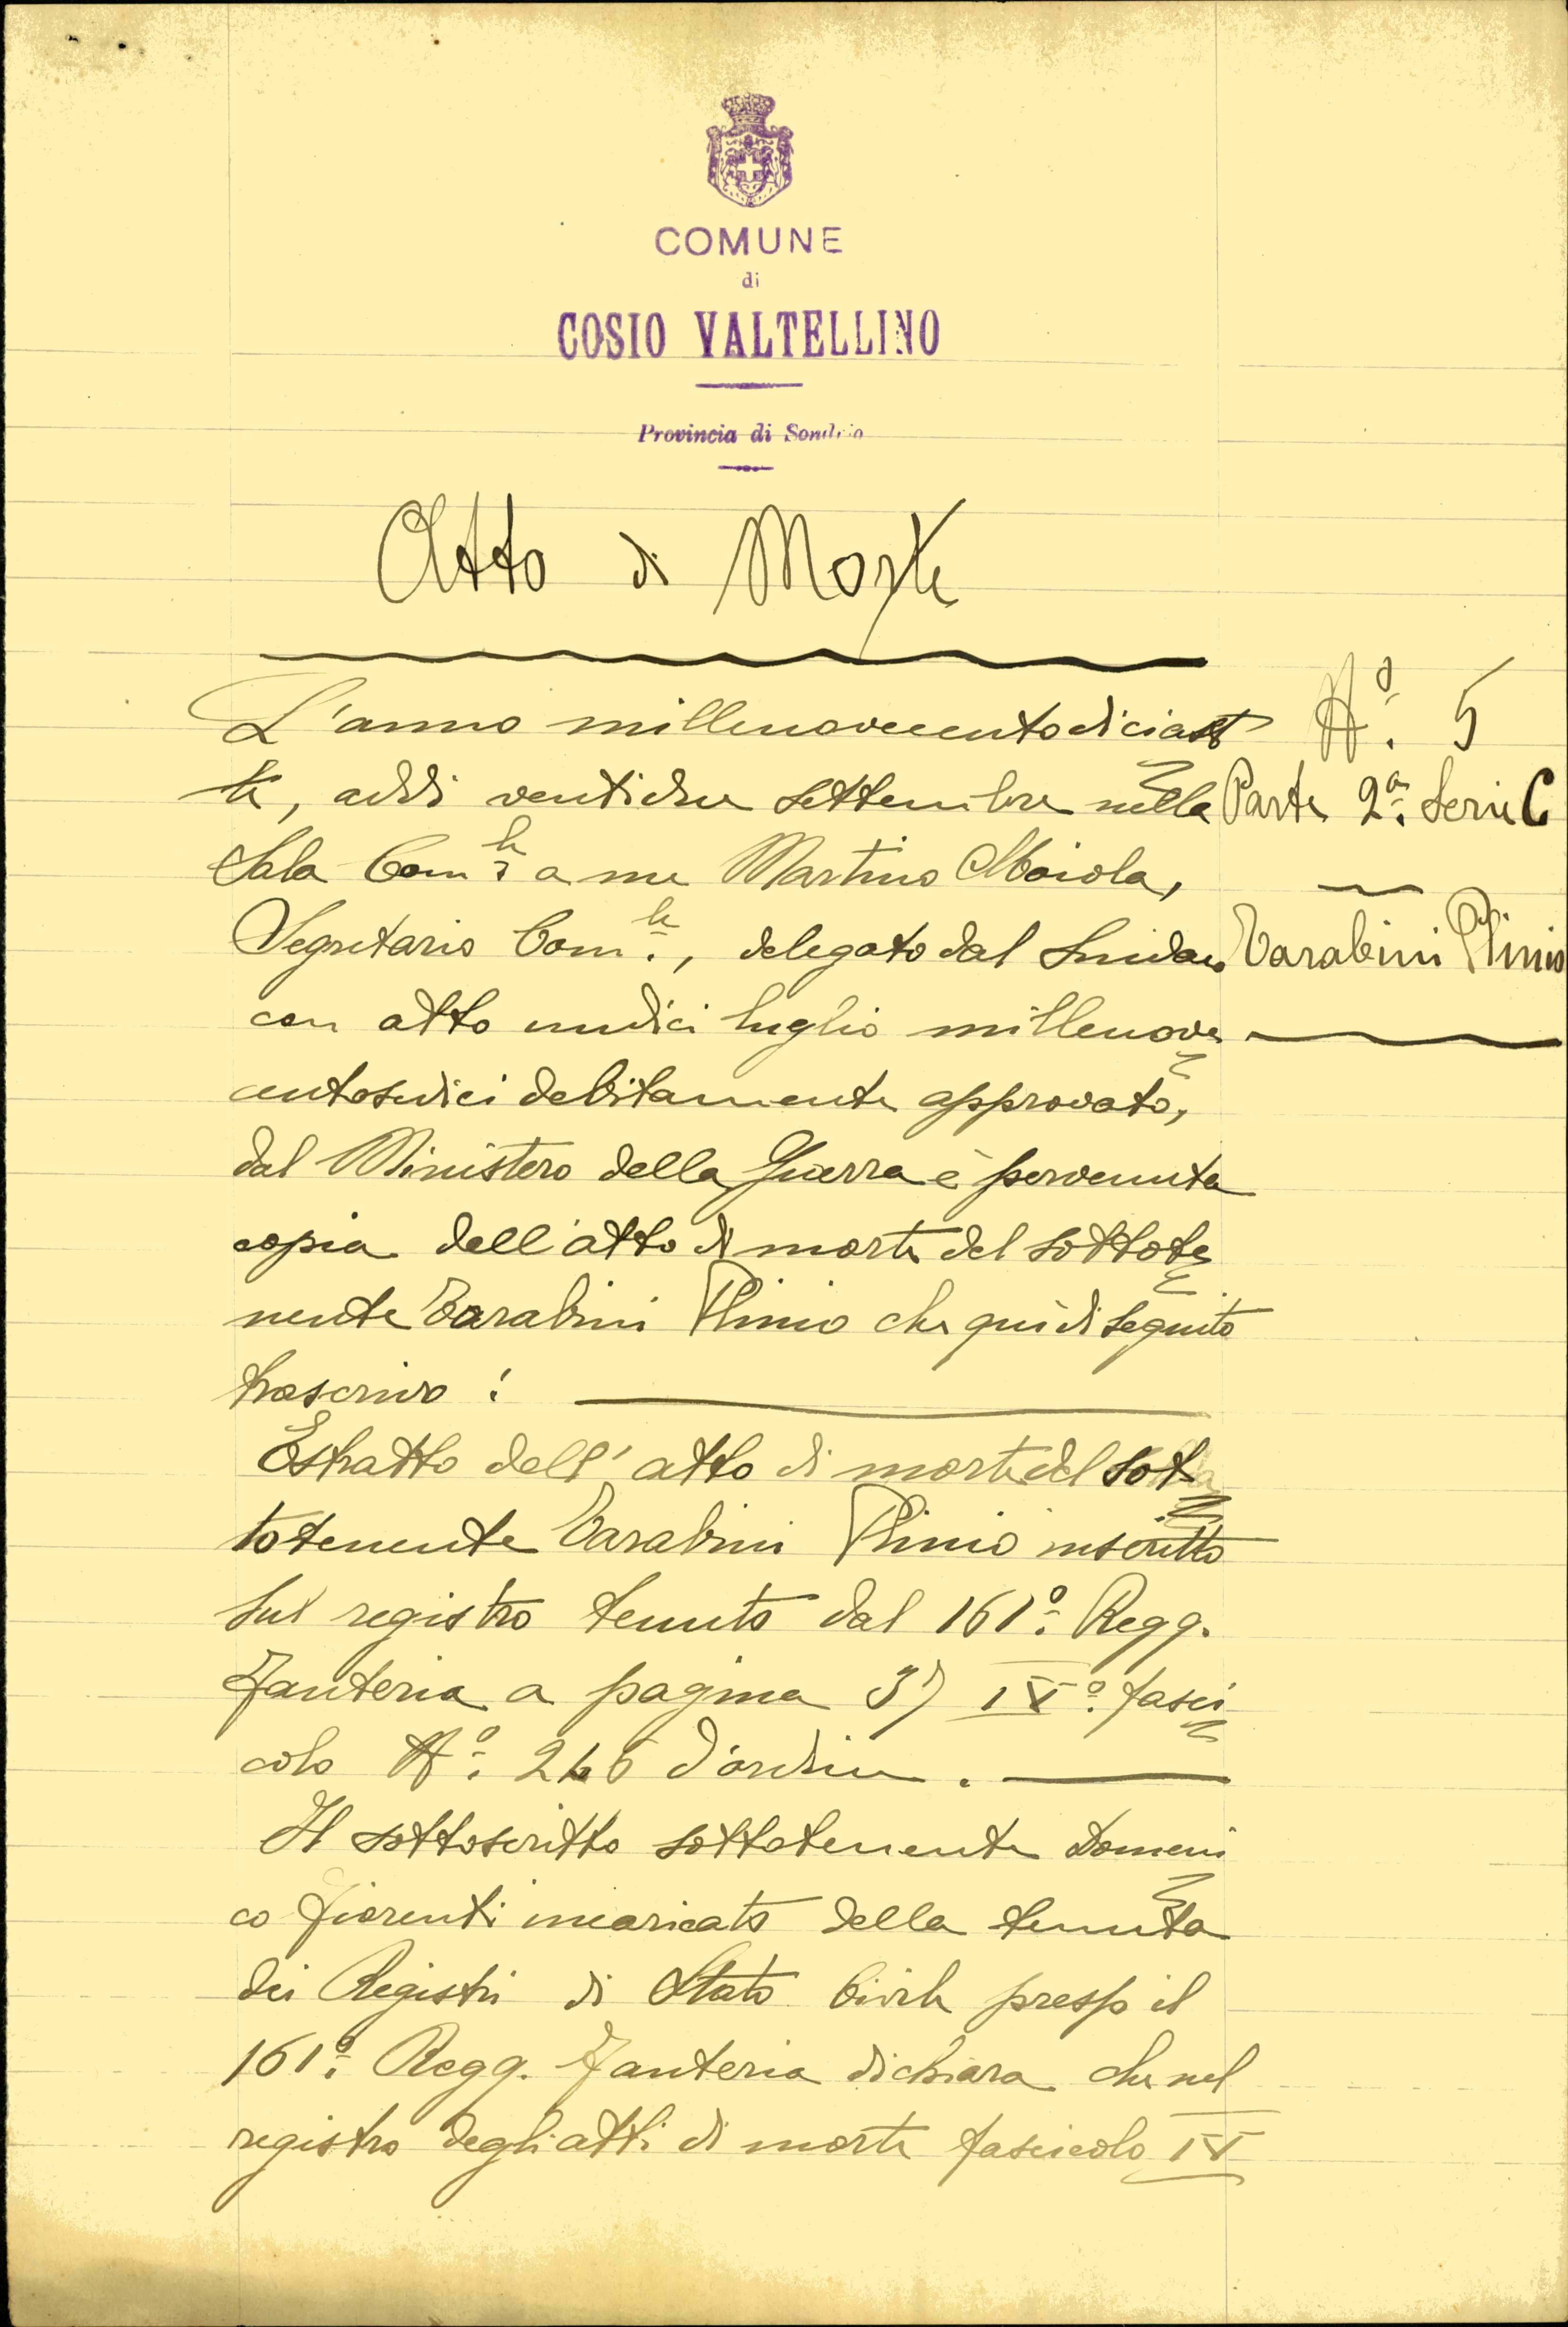 COMUNE
di
COSIO VALTELLINO
Provincia di Sondrio
Atto di Morte
N.º 5
Parte 2ª. Serie C
Tarabini Plinio
L'anno millenovecentodiciaset
te, addì ventidue settembre nella
Sala Com.le a me Martino
Segretario Com.le, delegato dal Sindaco
con atto undici luglio millenove
centosedici debitamente approvato,
dal Ministero della Guerra è pervenuta
copia dell'atto di morte del sottote
nente Tarabini Plinio che quì di seguito
trascrivo :
Estratto dell'atto di morte del sot
totenente Tarabini Plinio inscritto
sul registro tenuto dal 161º. Regg.
Fanteria a pagina 37 IVº. fasci
colo N.º d'ordine.
Il sottoscritto sottotenente Domeni
co Fiorenti incaricato della tenuta
dei Registri di Stato Civile presso il
161º. Regg. Fanteria dichiara che nel
registro degli atti di morte fascicolo IV